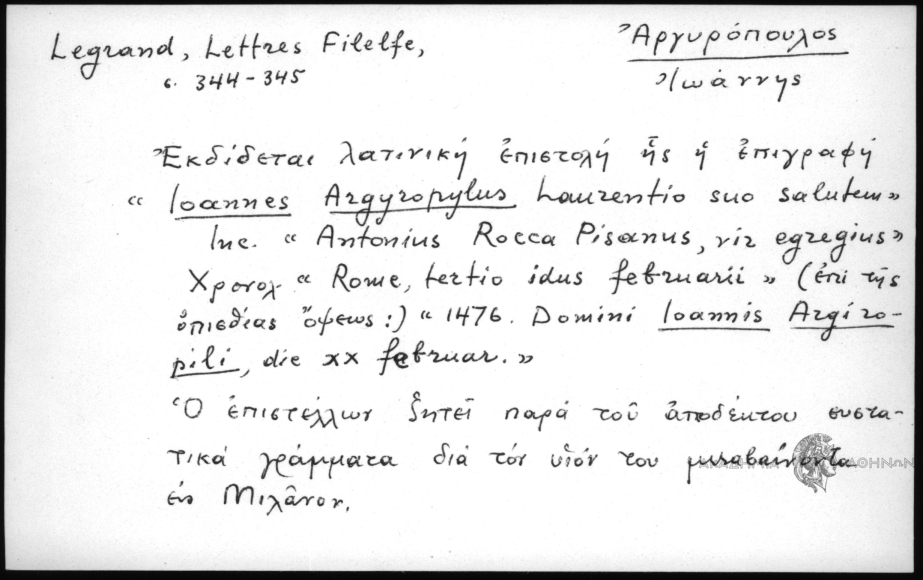 Legrand, Lettres Filelfe,
σ. 344-345
Ἀργυρόπουλος
Ἰωάννης
Ἐκδίδεται λατινική ἐπιστολή ἧς ἡ ἐπιγραφή
« Ioannes Argyropylus Laurentio suo salutem»
Inc. « Antonius Rocca Pisanus, vir egregius»
Χρονολ « Rome, tertio idus februarii » (ἐπί τῆς
ὀπισθίας ὄψεως:) « 1476. Domini Ioannis Argiro-
pili, die xx februar. »
Ὁ ἐπιστέλλων ζητεῖ παρά τοῦ ἀποδέκτου συστα-
τικά γράμματα διά τόν υἱόν του μεταβαίνοντα
εἰς Μιλᾶνον.
ΑΚΑΔΗΜΙΑ ΑΘΗΝΩΝ